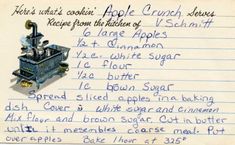 Here's what's cookin' Apple Crunch Serves
Recipe from the kitchen of V. Schmitt
6 large Apples
1/2 t Cinnamon
1/2 c. White Sugar
1 c flour
1/2 c butter
1c brown Sugar
Spread sliced apples in a baking
dish. Cover c̄ white sugar and cinnamon
Mix flour and brown sugar. Cut in butter
until it mesembles coarse meal. Put
over apples Bake 1 hour at 325°